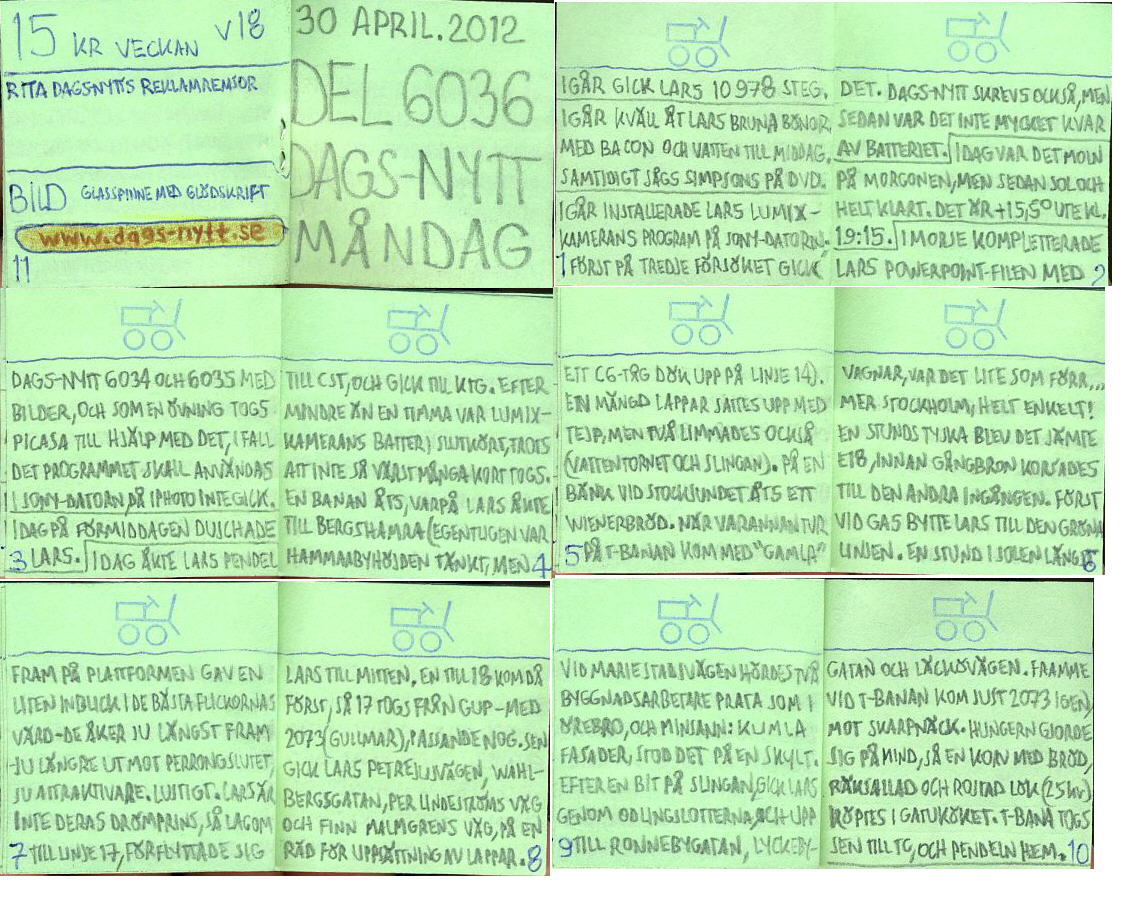 15 KR VECKAN V18
RITA DAGSNYTTS REKLAMREMSOR
BILD GLASSPINNE MED GLÖDSKRIFT
www.dags-nytt.se
11
30 APRIL.2012
DEL 6036
DAGS-NYTT
MÅNDAG
IGÅR GICK LARS 10978 STEG.
IGÅR KVÄLL ÅT LARS BRUNA BÖNOR
MED BACON OCH VATTEN TILL MIDDAG.
SAMTIDIGT SÅGS SIMPSONS PÅ DVD.
IGÅR INSTALLERADE LARS LUMIX-
KAMERANS PROGRAM PÅ SONY-DATORN.
1 FÖRST PÅ TREDJE FÖRSÖKET GICK
DET. DAGS-NYTT SKREVS OCKSÅ, MEN
SEDAN VAR DET INTE MYCKET KVAR
AV BATTERIET. IDAG VAR DET MOLN
PÅ MORGONEN, MEN SEDAN SOL OCH
HELT KLART. DET ÄR +15,5° UTE KL.
19:15. I MORJE KOMPLETTERADE
LARS POWERPOINT-FILEN MED 2
DAGS-NYTT 6034 OCH 6035 MED
BILDER, OCH SOM EN ÖVNING TOGS
PICASA TILL HJÄLP MED DET, IFALL
DET PROGRAMMET SKALL ANVÄNDAS
I SONY-DATORN, DÅ IPHOTO INTE GICK.
IDAG PÅ FÖRMIDDAGEN DUSCHADE
3 LARS. IDAG ÅKTE LARS PENDEL
TILL CST, OCH GICK TILL KTG. EFTER
MINDRE ÄN EN TIMMA VAR LUMIX-
KAMERANS BATTERI SLUTKÖRT, TROTS
ATT INTE SÅ VÄRST MÅNGA KORT TOGS.
EN BANAN ÅTS, VARPÅ LARS ÅKTE
TILL BERGSHAMRA (EGENTLIGEN VAR
HAMMARBYHÖJDEN TÄNKT, MEN 4
ETT C6-TÅG DÖK UPP PÅ LINJE 14).
EN MÄNGD LAPPAR SATTES UPP MED
TEJP, MEN TVÅ LIMMADES OCKSÅ
(VATTENTORNET OCH SLINGAN). PÅ EN
BÄNK VID STOCKSUNDET ÅTS ETT
WIENERBRÖD. NÄR VARANNAN TUR
5 PÅ T-BANAN KOM MED "GAMLA"
VAGNAR, VAR DET LITE SOM FÖRR,,,
MER STOCKHOLM, HELT ENKELT!
EN STUNDS TYSKA BLEV DET JÄMTE
E18, INNAN GÅNGBRON KORSADES
TILL DEN ANDRA INGÅNGEN. FÖRST
VID GAS BYTTE LARS TILL DEN GRÖNA
LINJEN. EN STUND I SOLEN LÄNGST 6
FRAM PÅ PLATTFORMEN GAV EN
LITEN INBLICK I DE BÄSTA FLICKORNAS
VÄRD-DE ÅKER JU LÄNGST FRAM
-JU LÄNGRE UT MOT PERRONGSLUTET,
JU ATTRAKTIVARE. LUSTIGT. LARS ÄR
INTE DERAS DRÖMPRINS, SÅ LAGOM
7 TILL LINJE 17, FÖRFLYTTADE SIG
LARS TILL MITTEN. EN TILL 18 KOM DÅ
FÖRST, SÅ 17 TOGS FRÅN GUP-MED
2073 (GULLMAR), PASSANDE NOG. SEN
GICK LARS PETREJUSVÄGEN, WAHL-
BERGSGATAN, PER LINDESTRÖMS VÄG
OCH FINN MALMGRENS VÄG, PÅ EN
RÅD FÖR UPPSÄTTNING AV LAPPAR. 8
VID MARIESTADSVÄGEN HÖRDES TVÅ
BYGGNADSARBETARE PRATA SOM I
ÖREBRO, OCH MINSANN: KUMLA
FASADER, STOD DET PÅ EN SKYLT.
EFTER EN BIT PÅ SLINGAN, GICK LARS
GENOM ODLINGSLOTTERNA, OCH UPP
9 TILL RONNEBYGATAN, LYCKEBY-
GATAN OCH LÄCKÖVÄGEN. FRAMME
VID T-BANAN KOM JUST 2073 IGEN,
MOT SKARPNÄCK. HUNGERN GJORDE
SIG PÅMIND, SÅ EN KORV MED BRÖD,
RÄKSALLAD OCH ROSTAD LÖK (25 kr)
KÖPTES I GATUKÖKET. T-BANA TOGS
SEN TILL TC, OCH PENDELN HEM. 10